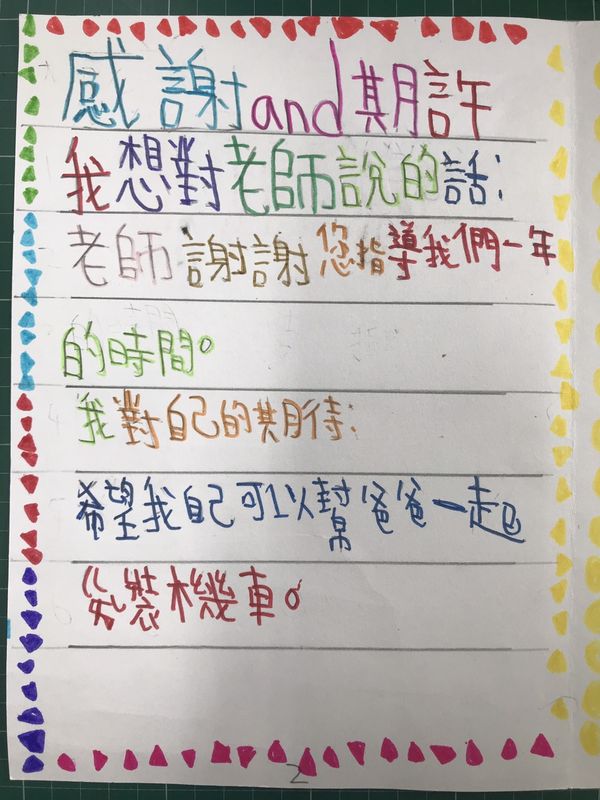 感謝and期許
我想對老師說的話:
老師謝謝您指導我們一年
的時間。
我對自己的期待:
希望我自己可以幫爸爸一起
裝機車。
2